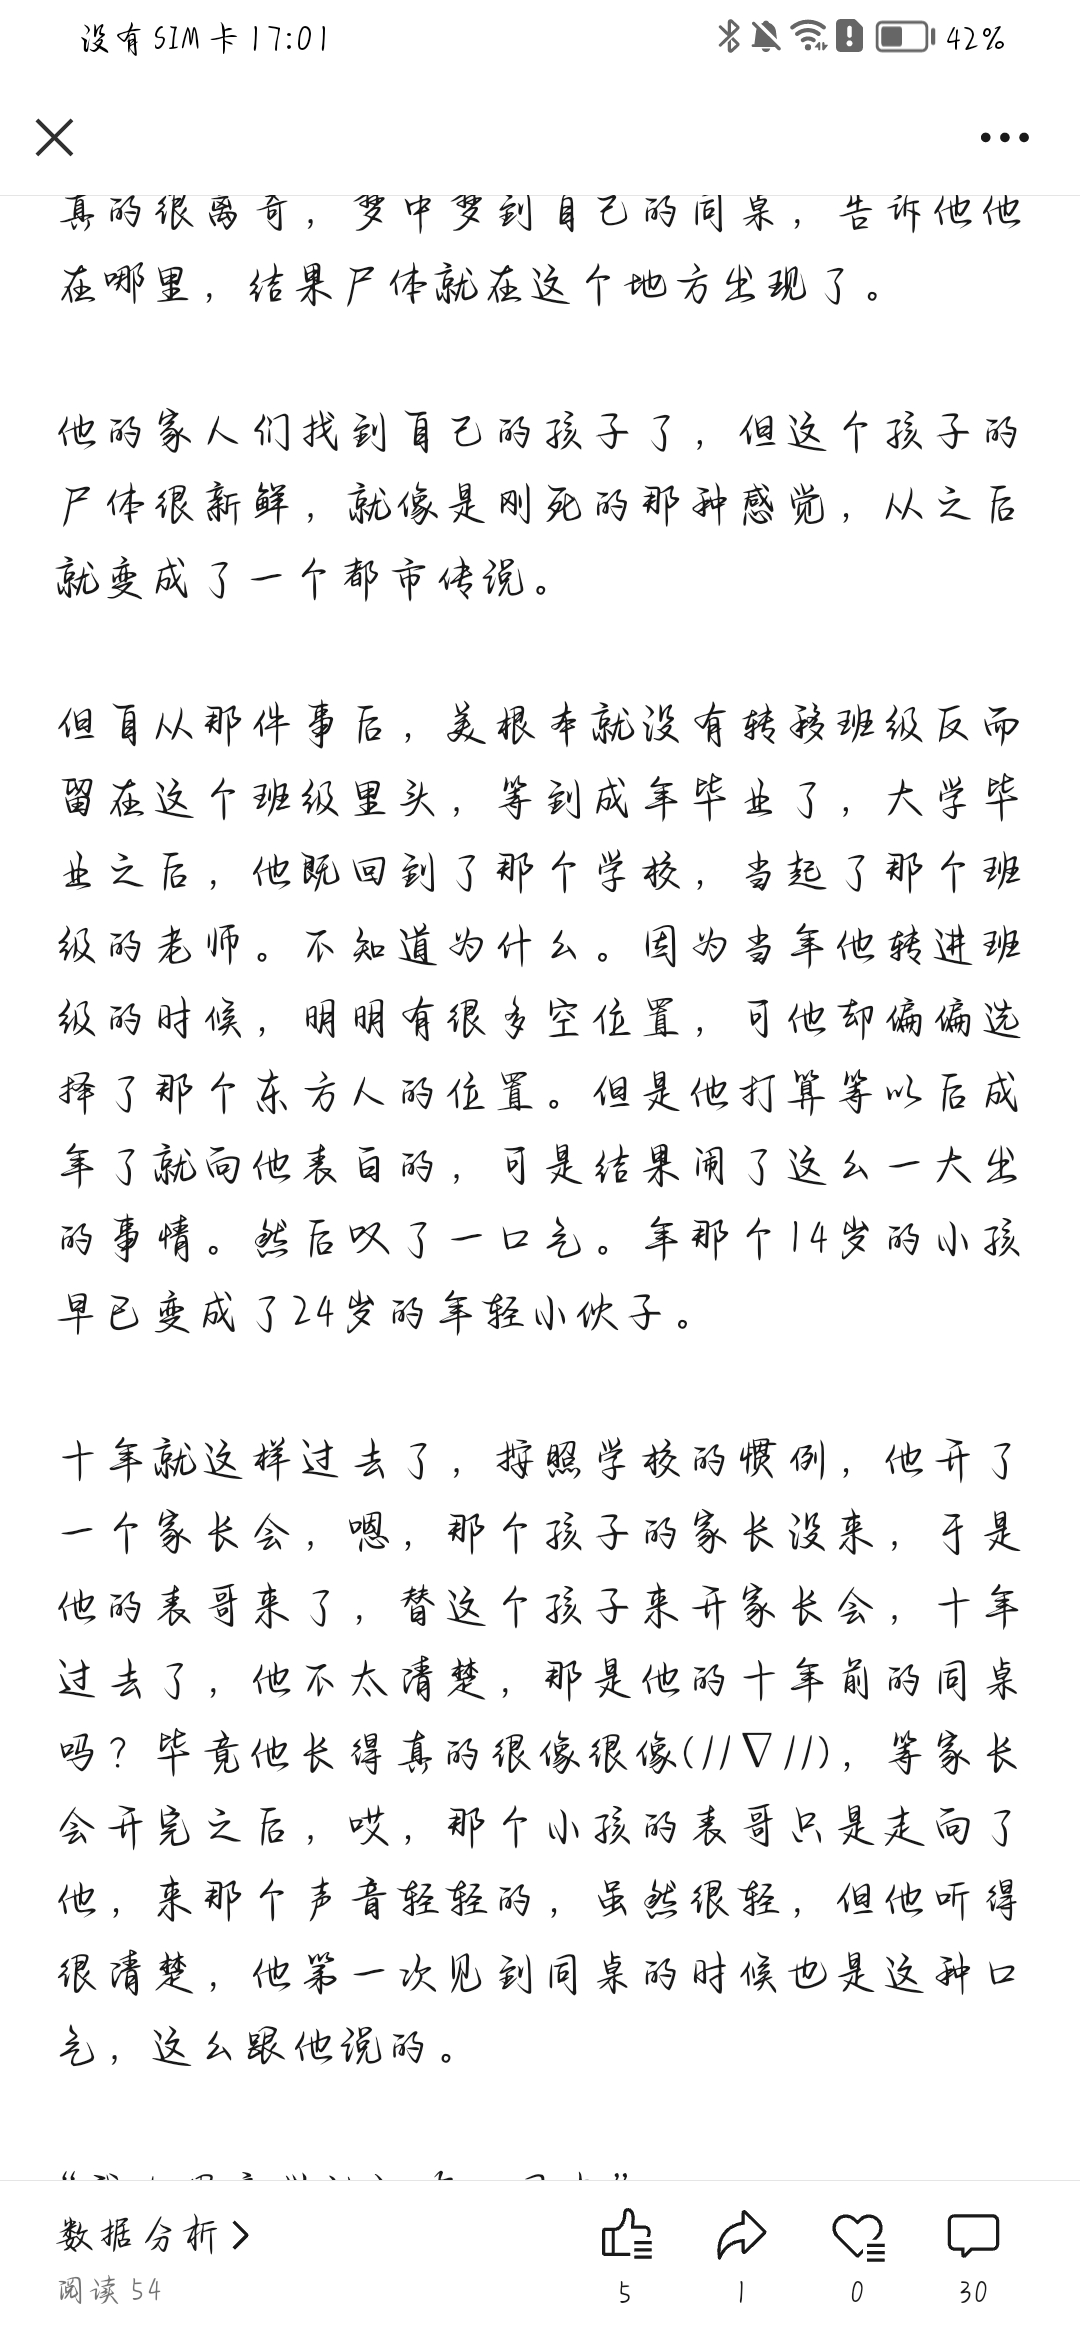 没有SIM卡 17:01
42%
真的很离奇，梦中梦到自己的同桌，告诉他他
在哪里，结果尸体就在这个地方出现了。
他的家人们找到自己的孩子了，但这个孩子的
尸体很新鲜，就像是刚死的那种感觉，从之后
就变成了一个都市传说。
但自从那件事后，美根本就没有转移班级反而
留在这个班级里头，等到成年毕业了，大学毕
业之后，他既回到了那个学校，当起了那个班
级的老师。不知道为什么。因为当年他转进班
级的时候，明明有很多空位置，可他却偏偏选
择了那个东方人的位置。但是他打算等以后成
年了就向他表白的，可是结果闹了这么一大出
的事情。然后叹了一口气。年那个14岁的小孩
早已变成了24岁的年轻小伙子。
十年就这样过去了，按照学校的惯例，他开了
一个家长会，嗯，那个孩子的家长没来，于是
他的表哥来了，替这个孩子来开家长会，十年
过去了，他不太清楚，那是他的十年前的同桌
吗？毕竟他长得真的很像很像(//∇//)，等家长
会开完之后，哎，那个小孩的表哥只是走向了
他，来那个声音轻轻的，虽然很轻，但他听得
很清楚，他第一次见到同桌的时候也是这种口
气，这么跟他说的。
数据分析
阅读 54
5
1
0
30